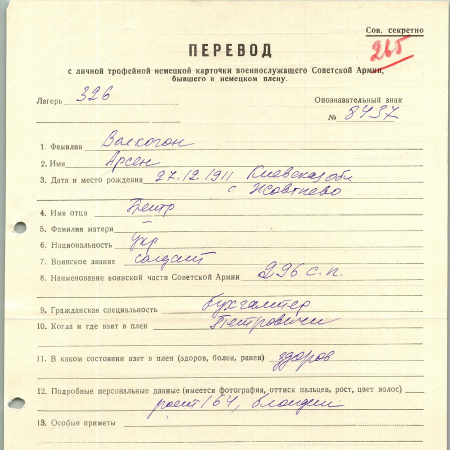 Сов. секретно
265
ПЕРЕВОД
с личной трофейной немецкой карточки военнослужащего Советской Армии,
бывшего в немецком плену.
Лагерь 326
Опознавательный знак
№ 8437
1. Фамилия Волкогон
2. Имя Арсен
3. Дата и место рождения 27.12.1911 Киевская обл.
с Жовтнево
4. Имя отца Пётр
5. Фамилия матери –
6. Национальность укр
7. Воинское звание солдат
8. Наименование воинской части Советской Армии 296 с.п.
9. Гражданская специальность бухгалтер
10. Когда и где взят в плен Петровичи
11. В каком состоянии взят в плен (здоров, болен, ранен) здоров
12. Подробные персональные данные (имеется фотография, оттиск пальцев, рост, цвет волос)
рост 164, блондин
13. Особые приметы